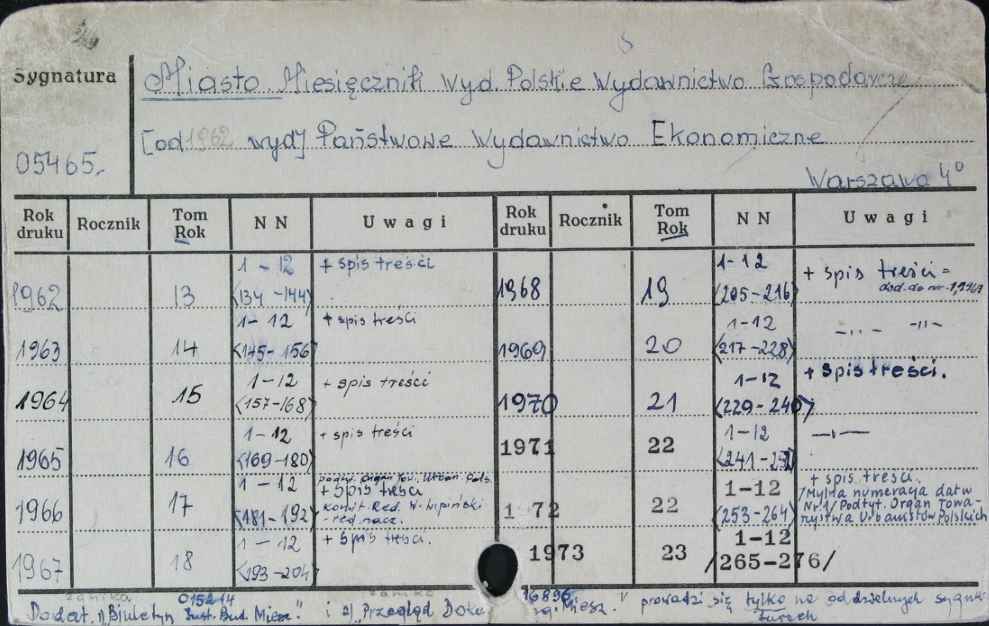 Sygnatura
Miasto Miesięcznik Wyd. Polskie Wydawnictwo Gospodarcze
[od 1962 wyd] Państwowe Wydawnictwo Ekonomiczne
05465.
Warszawa 4°
Rok druku Rocznik Tom Rok NN Uwagi Rok druku Rocznik Tom Rok NN Uwagi
1962 13 1-12 <134-144> + spis treści
1963 14 1-12 <145-156> + spis treści
1964 15 1-12 <157-168> + spis treści
1965 16 1-12 <169-180> + spis treści
1966 17 1-12 <181-192> + spis treści
Komit. Red. W. Lipiński
- red. nacz.
1967 18 1-12 <193-204> + spis treści.
1968 19 1-12 <205-216> + spis treści =
dod. do nr.
1969 20 1-12 <217-228> -,,- -,,-
1970 21 1-12 <229-240> + spis treści.
1971 22 1-12 -"-
1 72 22 1-12 <253-264> + spis treści.
/Mylna numeracja dat w
Nr 1/ Podtyt. Organ Towa-
rzystwa Urbanistów Polskich
1973 23 1-12 /265-276/
zanika 015214 zanika 16896
Dodat. 1) "Biuletyn Inst. Bud. Miesz." i 2) "Przegląd Doku Miesz." prowadzi się tylko na oddzielnych sygna-
turach